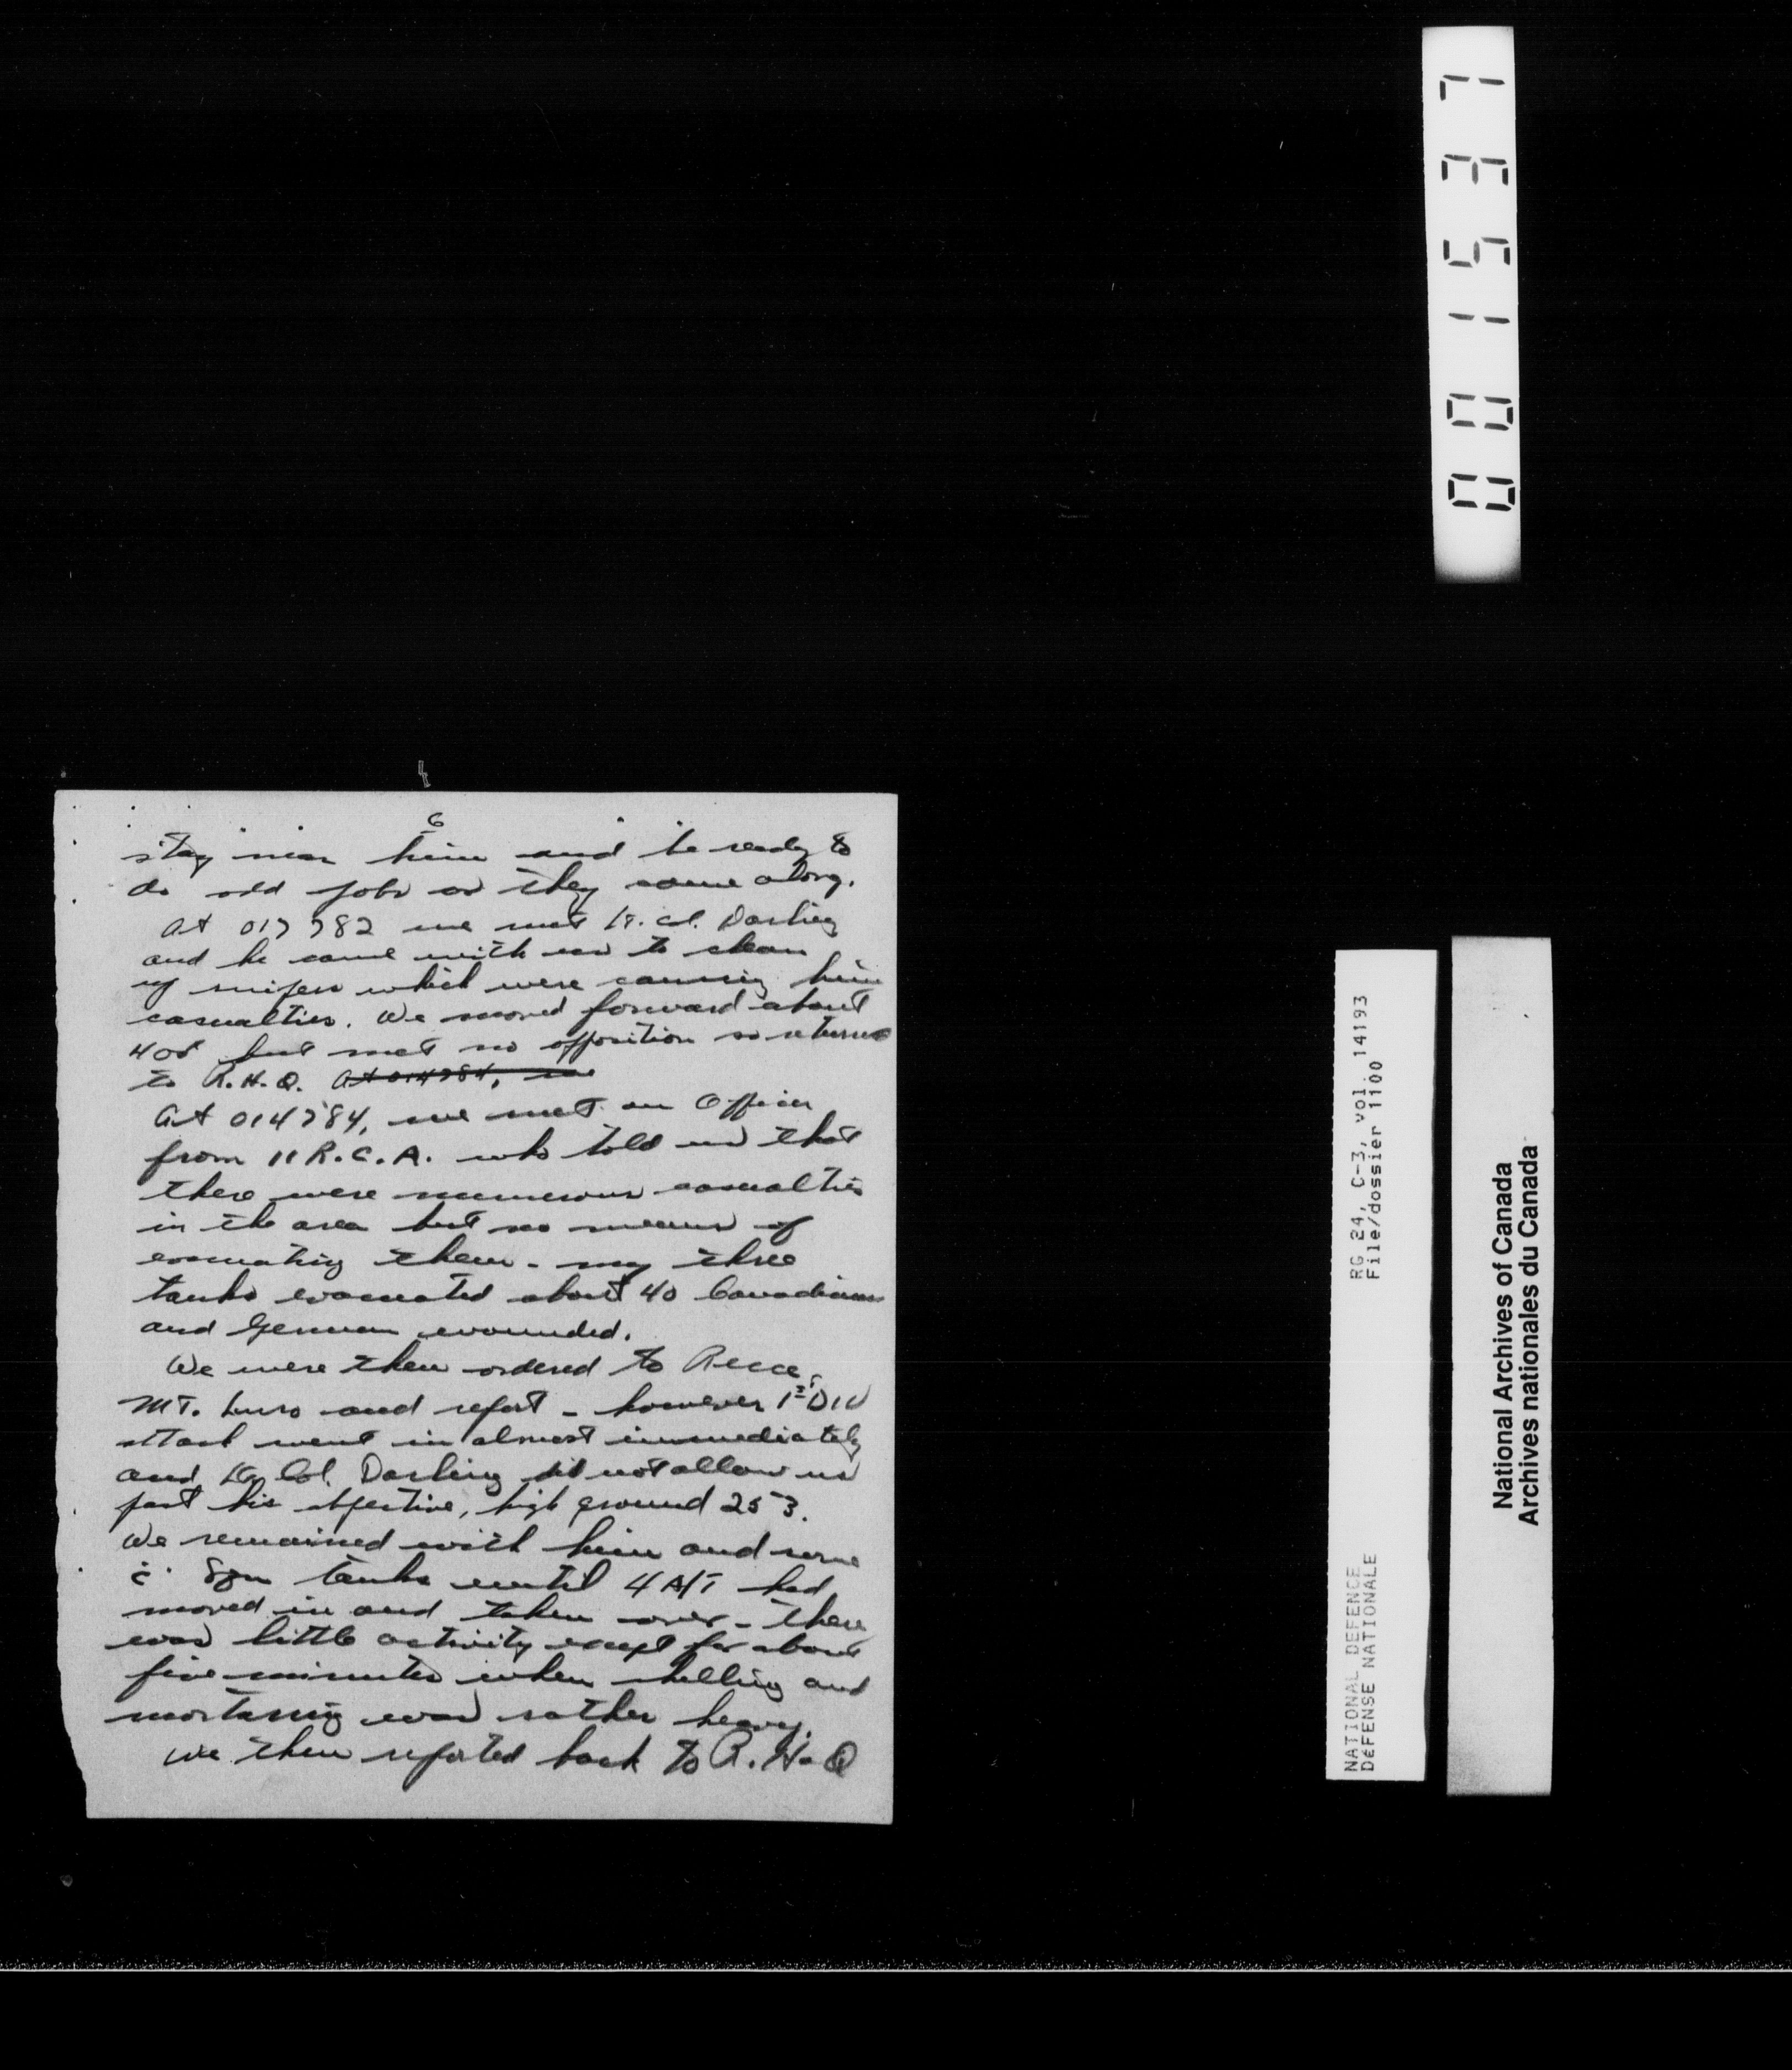 6
stay near him and be ready to
do odd jobs as they came along.
At 017782 we met Lt. Col. Darling
and he came with us to clean
up snipers which were causing him
casualties. We moved forward about
400 but met no opposition so returned
to R.H.Q. At 014784, we
At 014784, we met an Officer
from 11 R.C.A. who told us that
there were numerous casualties
in the area but no means of
evacuating them - my three
tanks evacuated about 40 Canadians
and German wounded.
We were then ordered to Recce
MT. Luro and report - however 1st Div
attack went in almost immediately
and Lt. Col. Darling did not allow us
past his objective, high ground 253.
We remained with him and some
"C" Sqn tanks until 4 A/T had
moved in and taken over - there
was little activity except for about
five minutes when shelling and
mortaring was rather heavy.
We then reported back to R.H.Q
001537
NATIONAL DEFENCE RG 24, C-3, vol. 14193
DÉFENSE NATIONALE File/dossier 1100
National Archives of Canada
Archives nationales du Canada